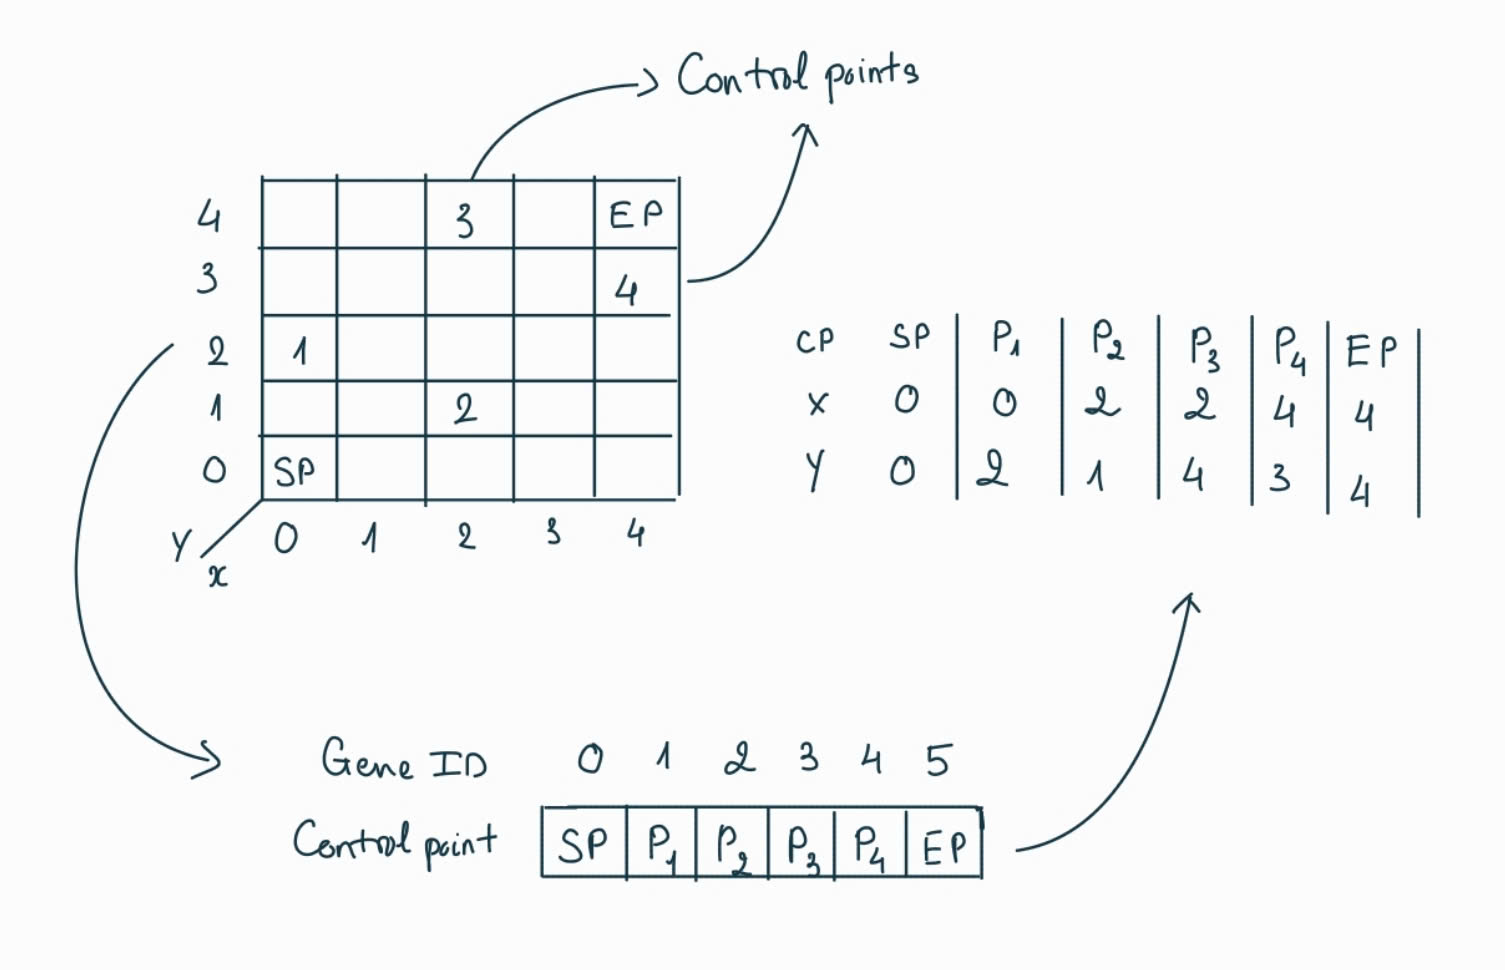 Control points
4 3 EP
3 4
2 1
1 2
0 SP
Y 0 1 2 3 4
x
CP SP P₁ P₂ P₃ P₄ EP
X 0 0 2 2 4 4
Y 0 2 1 4 3 4
Gene ID 0 1 2 3 4 5
Control point SP P₁ P₂ P₃ P₄ EP